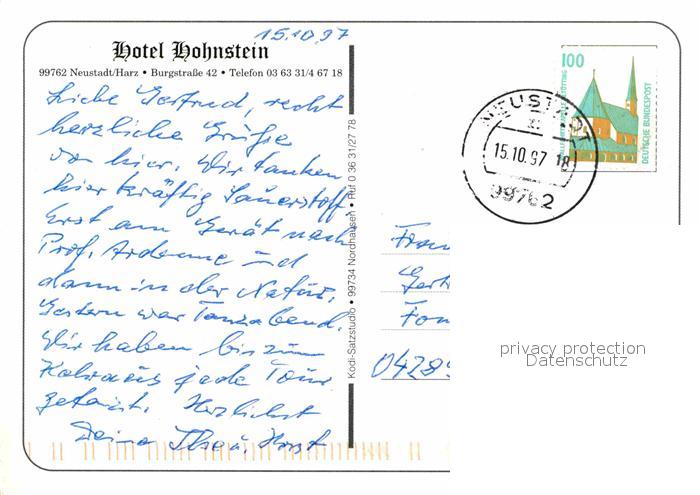 15.10.97
Hotel Hohnstein
99762 Neustadt/Harz • Burgstraße 42 • Telefon 03 63 31/4 67 18
Liebe Gertrud, recht
herzliche Grüße
von hier. Wir tanken
hier kräftig Sauerstoff.
Erst am Gerät nach
Prof. Ardenne und
dann in der Natur.
Gestern war Tanzabend.
Wir haben bis zum
Kehraus jede Tour
getanzt. Herzlichst
Deine Ilse u. Horst
Kodi-Satzstudio • 99734 Nordhausen • Ruf 0 36 31/27 78
100
DEUTSCHE BUNDESPOST
NEUSTADT
15.10.97 18
99762
Frau
Gert
Fon
0428
privacy protection
Datenschutz